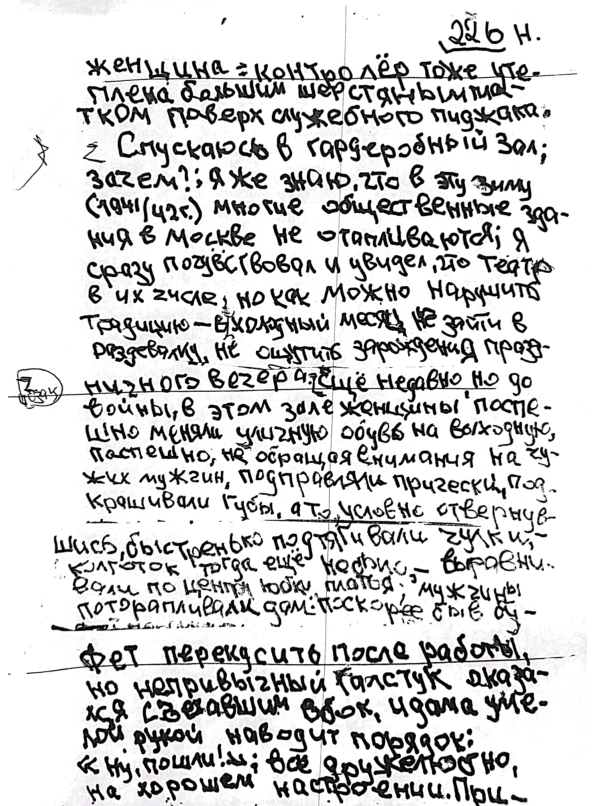 226 н.
женщина = контролёр тоже уте-
плена большим шерстяным пла-
тком поверх служебного пиджака.
Спускаюсь в гардеробный зал;
зачем?; я же знаю, что в эту зиму
(1941/42 г.) многие общественные зда-
ния в Москве не отапливаются; я
сразу почувствовал и увидел, что театр
в их числе; но как можно нарушить
традицию – в холодный месяц не зайти в
раздевалку, не ощутить зарождения празд-
ничного вечера. Ещё недавно но до
войны, в этом зале женщины поспе-
шно меняли уличную обувь на выходную,
поспешно, не обращая внимания на чу-
жих мужчин, подправляли прически, под-
крашивали губы, а то, условно отвернув-
шись, быстренько подтягивали чулки, –
колготок тогда ещё не было, – выравни-
вали по центру юбки, платья; мужчины
поторапливали дам: поскорее бы в бу-
фет перекусить после работы,
но непривычный галстук оказа-
лся съехавшим вбок, и дама уме-
лой рукой наводит порядок:
« ну, пошли!»; всё дружелюбно,
на хорошем настроении. При-